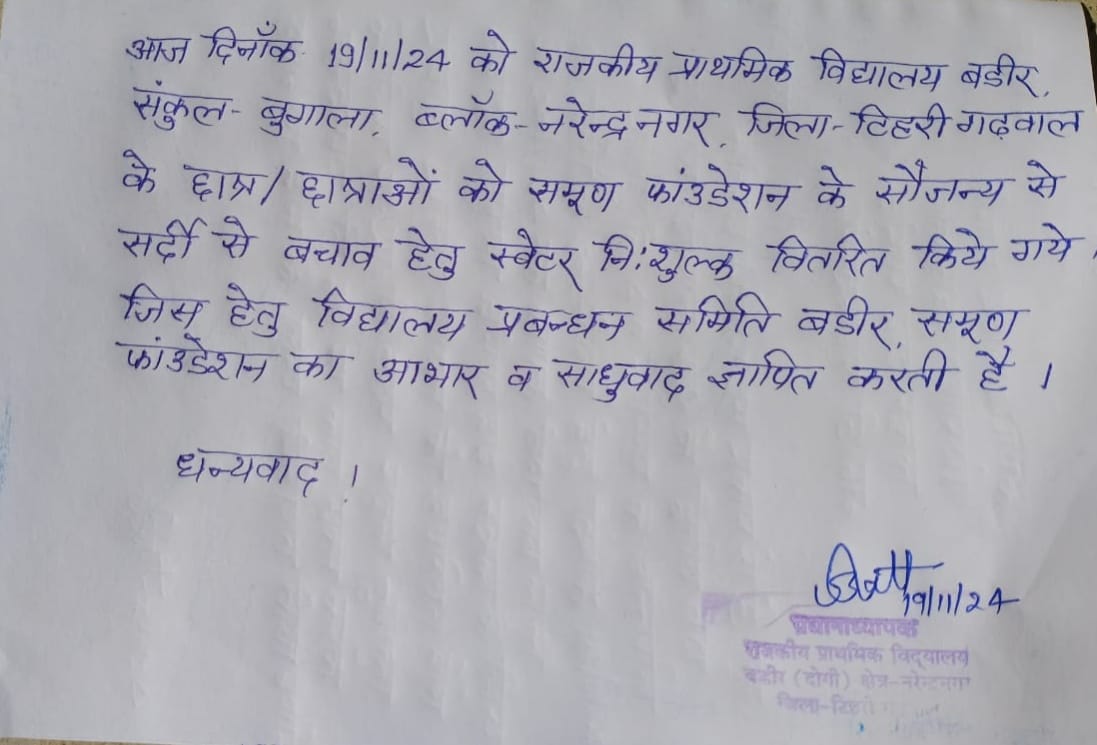 आज दिनाँक 19/11/24 को राजकीय प्राथमिक विद्यालय बडीर,
संकुल- बुगाला, ब्लॉक-नरेन्द्रनगर, जिला-टिहरी गढ़वाल
के छात्र/छात्राओं को समूण फांउडेशन के सौजन्य से
सर्दी से बचाव हेतु स्वेटर नि:शुल्क वितरित किये गये,
जिस हेतु विद्यालय प्रबन्धन समिति बडीर, समूण
फांउडेशन का आभार व साधुवाद ज्ञापित करती है ।
धन्यवाद !
19/11/24
प्रधानाध्यापक
राजकीय प्राथमिक विद्यालय
बडीर (दोगी) क्षेत्र-नरेन्द्रनगर
जिला-टिहरी